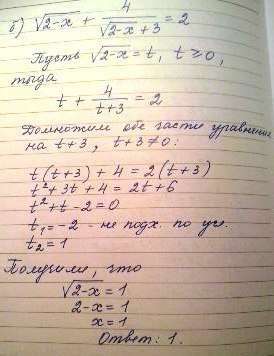 б) √(2-x) + 4/(√(2-x) + 3) = 2
Пусть √(2-x) = t, t ≥ 0,
тогда
t + 4/(t+3) = 2
Домножим обе части уравнения
на t+3, t+3≠0:
t(t+3) + 4 = 2(t+3)
t²+3t+4 = 2t+6
t²+t-2=0
t₁=-2 - не подх. по усл.
t₂=1
Получили, что
√(2-x) = 1
2-x = 1
x = 1
Ответ: 1.